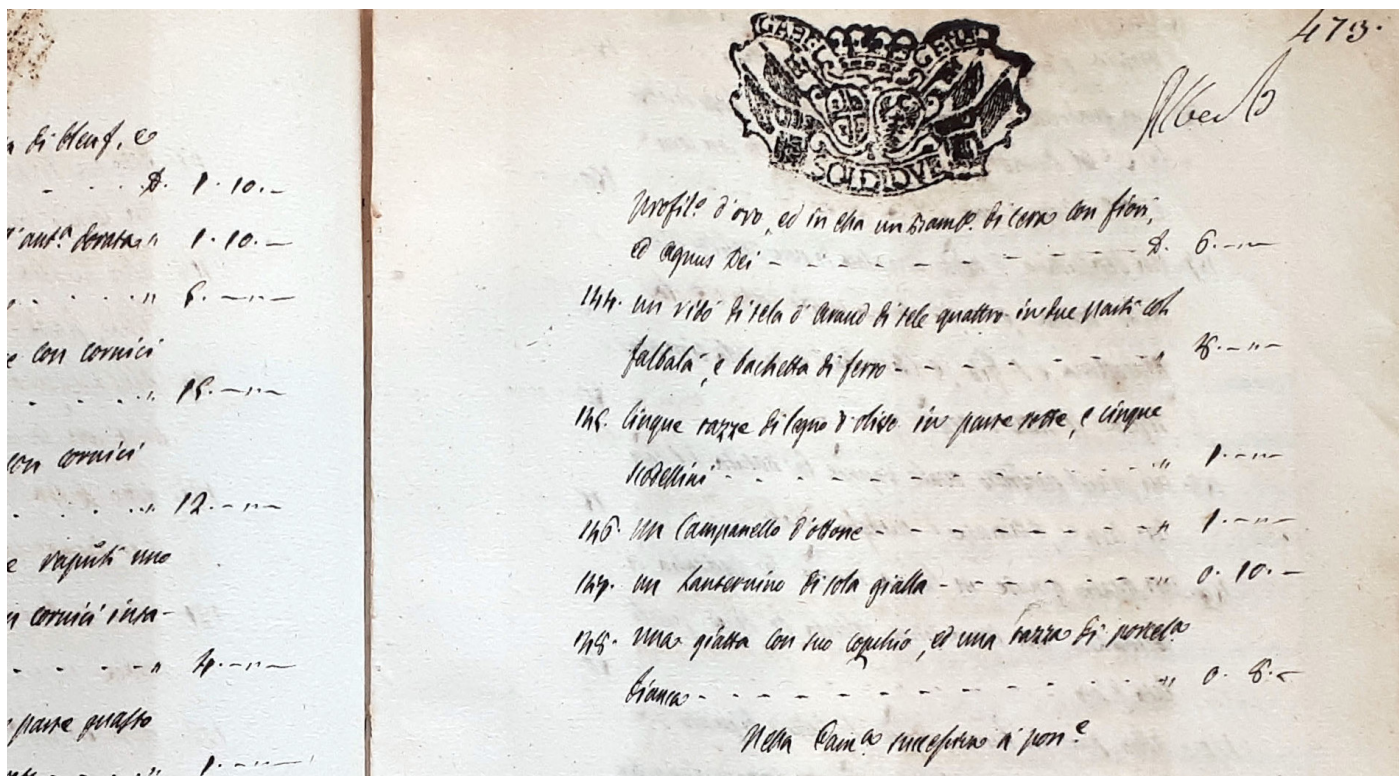 a di bleuf, e
. . . . D. 1. 10. —
d'ant.ª dorata „ 1. 10. —
. . . . . „ 6. — „ —
e con cornici
. . . . „ 15. — „ —
con cornici
. . . . „ 12. — „ —
uno
cornici inta-
. . . . „ 4. — „ —
parte guasto
„ 1. — „ —
473.
GABEL GENER
SOLDI DUE
profil.º d'oro, ed in essa un di cera con fiori,
ed Agnus Dei - - - - - D. 6. — „ —
144. un ridò di tela d' di tele quattro in due parti col
falbalà, e bachetta di ferro - - - „ 8. — „ —
145. Cinque tazze di legno d'olivo in parte rotte, e cinque
scodellini - - - - - „ 1. — „ —
146. un Campanello d'ottone - - - - - „ 1. — „ —
147. un Lanternino di tola gialla - - - „ 0. 10. —
148. una giatta con suo copechio, ed una tazza di porcela
bianca - - - - - „ 0. 8. —
Nella Cam.ª successiva a pon.e